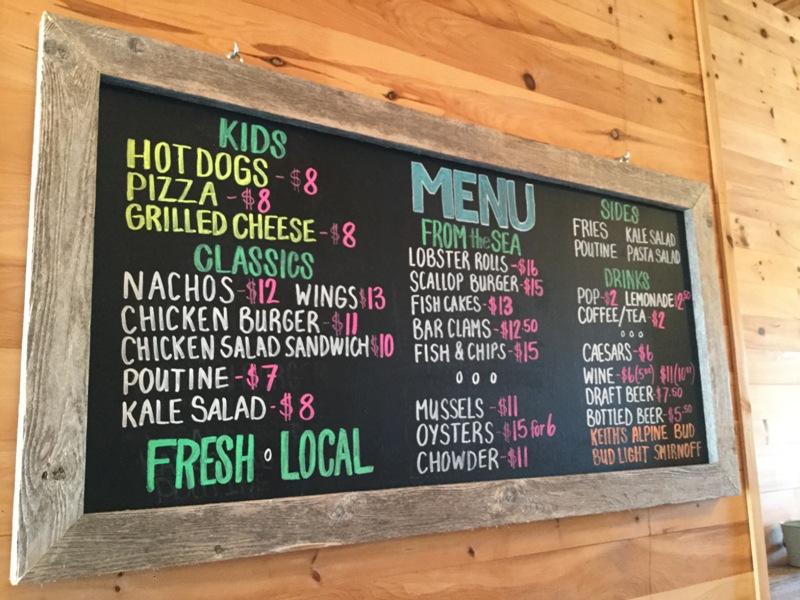 KIDS
HOT DOGS - $8
PIZZA - $8
GRILLED CHEESE - $8
CLASSICS
NACHOS - $12 WINGS $13
CHICKEN BURGER - $11
CHICKEN SALAD SANDWICH $10
POUTINE - $7
KALE SALAD - $8
FRESH o LOCAL
MENU
FROM the SEA
LOBSTER ROLLS - $16
SCALLOP BURGER - $15
FISH CAKES - $13
BAR CLAMS - $12.50
FISH & CHIPS - $15
o o o
MUSSELS - $11
OYSTERS - $15 for 6
CHOWDER - $11
SIDES
FRIES KALE SALAD
POUTINE PASTA SALAD
DRINKS
POP - $2 LEMONADE $2.50
COFFEE/TEA - $2
o o o
CAESARS - $6
WINE - $6 (5oz) $11 (10oz)
DRAFT BEER - $7.50
BOTTLED BEER - $5.50
KEITH'S ALPINE BUD
BUD LIGHT SMIRNOFF